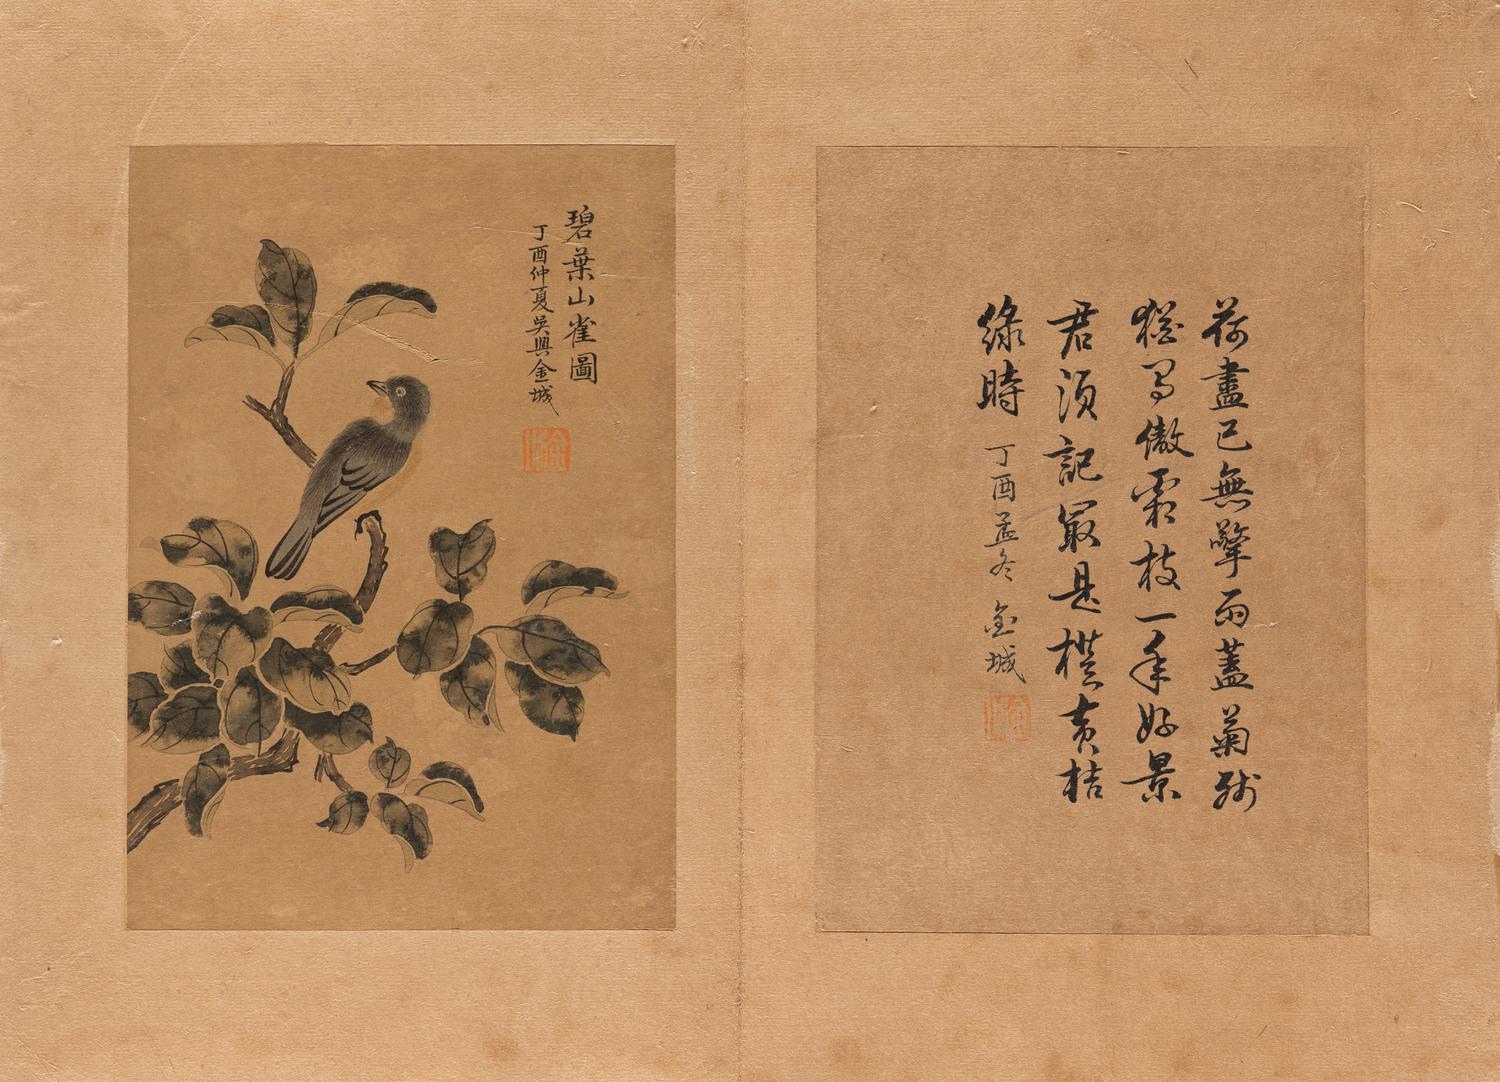 荷盡已無擎雨蓋菊殘
猶有傲霜枝一年好景
君須記最是橙黄桔
綠時 丁酉孟冬 金城
碧葉山雀圖
丁酉仲夏吳興金城